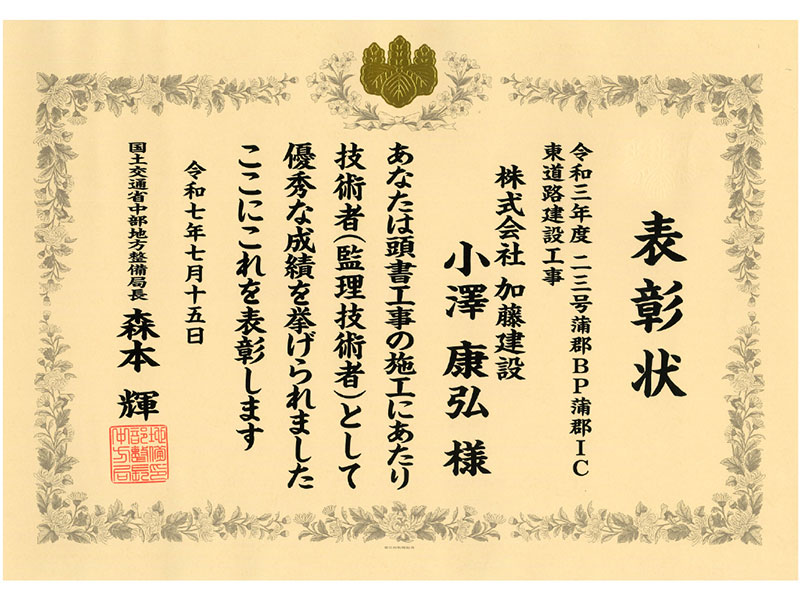 表彰状
令和三年度 二三号蒲郡BP蒲郡IC
東道路建設工事
株式会社 加藤建設
小澤 康弘 様
あなたは頭書工事の施工にあたり
技術者(監理技術者)として
優秀な成績を挙げられました
ここにこれを表彰します
令和七年七月十五日
国土交通省中部地方整備局長 森本 輝